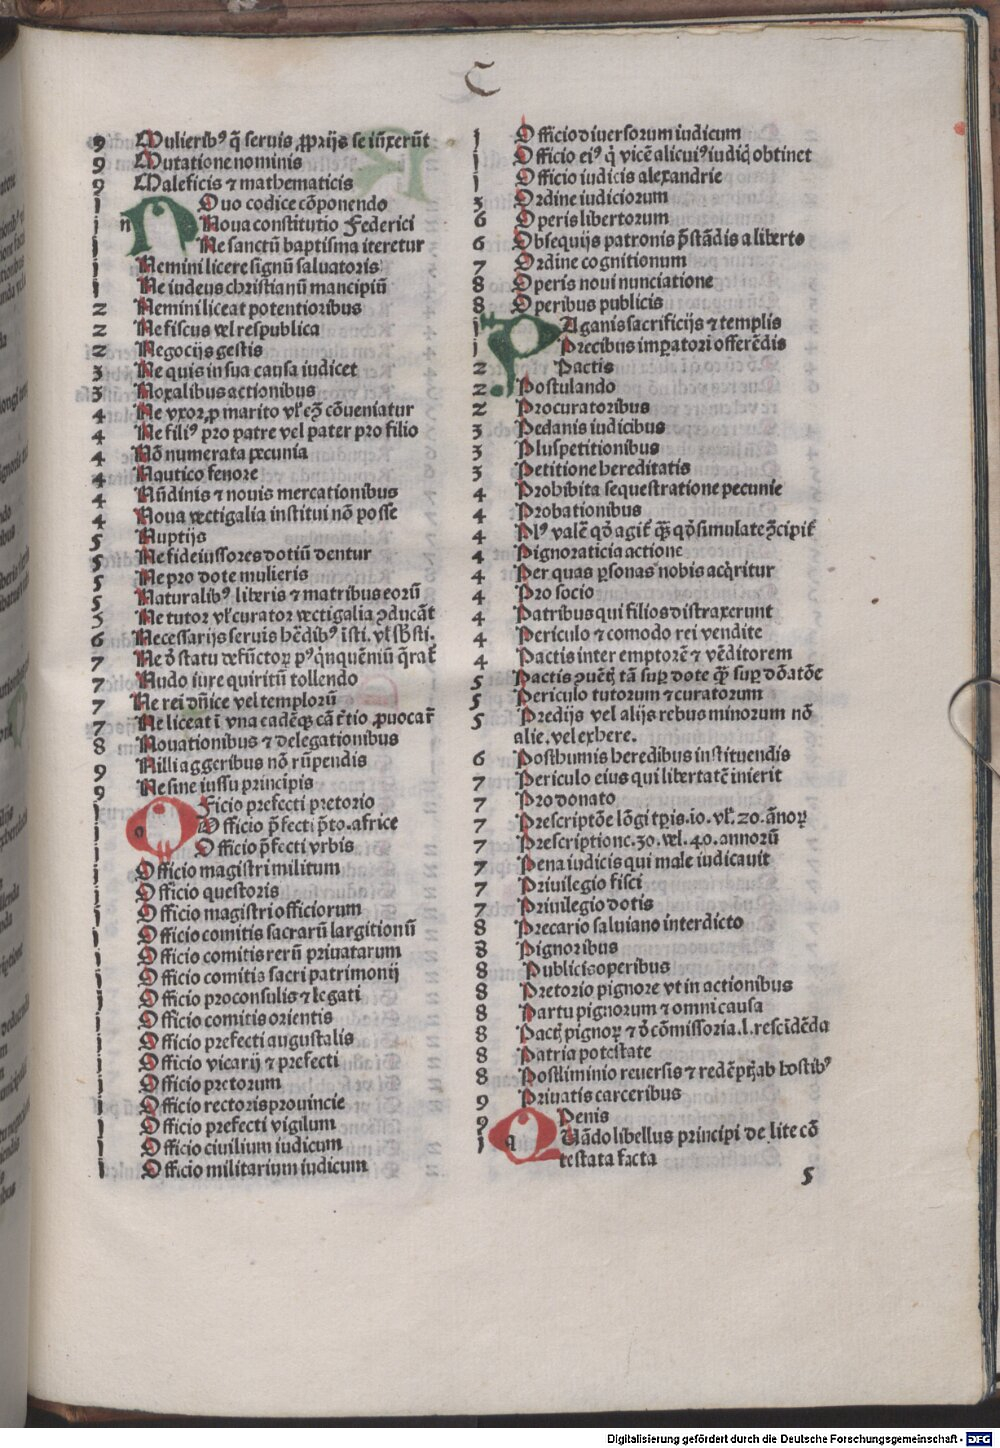 C
9 Mulieribꝰ q̄ seruis ꝓprijs se iūxerūt
9 Mutatione nominis
9 Maleficis ⁊ mathematicis
1 Nouo codice cōponendo
1 n Noua constitutio Federici
1 Ne sanctū baptisma iteretur
1 Nemini licere signū saluatoris
1 Ne iudeus christianū mancipiū
2 Nemini liceat potentioribus
2 Ne fiscus vel respublica
2 Negocijs gestis
3 Ne quis in sua causa iudicet
3 Noxalibus actionibus
4 Ne vxor ꝓ marito vl' ecō cōueniatur
4 Ne filiꝰ pro patre vel pater pro filio
4 Nō numerata pecunia
4 Nautico fenore
4 Nūdinis ⁊ nouis mercationibus
4 Noua vectigalia institui nō posse
5 Nuptijs
5 Ne fideiussores dotiū dentur
5 Ne pro dote mulieris
5 Naturalibꝰ liberis ⁊ matribus eorū
5 Ne tutor vl' curator vectigalia ꝯducāt
6 Necessarijs seruis hēdibꝰ īsti. vl' sb̄sti.
7 Ne d̄ statu defūctoꝝ pꝰ q̄nquēniū q̄rat̄
7 Nudo iure quiritū tollendo
7 Ne rei dn̄ice vel templorū
7 Ne liceat ī vna eadēqꝫ cā t̄tio ꝓuocar̄
8 Nouationibus ⁊ delegationibus
9 Nilli aggeribus nō rūpendis
9 Ne sine iussu principis
1 Officio prefecti pretorio
1 o Officio p̄fecti p̄to. africe
1 Officio p̄fecti vrbis
1 Officio magistri militum
1 Officio questoris
1 Officio magistri officiorum
1 Officio comitis sacrarū largitionū
1 Officio comitis rerū priuatarum
1 Officio comitis sacri patrimonij
1 Officio proconsulis ⁊ legati
1 Officio comitis orientis
1 Officio prefecti augustalis
1 Officio vicarij ⁊ prefecti
1 Officio pretorum
1 Officio rectoris prouincie
1 Officio prefecti vigilum
1 Officio ciuilium iudicum
1 Officio militarium iudicum
1 Officio diuersorum iudicum
1 Officio eiꝰ q̄ vicē alicuiꝰ iudicꝭ obtinet
1 Officio iudicis alexandrie
3 Ordine iudiciorum
6 Operis libertorum
6 Obsequijs patronis p̄stādis a liberto
7 Ordine cognitionum
8 Operis noui nunciatione
8 Operibus publicis
1 Paganis sacrificijs ⁊ templis
1 Precibus imꝑatori offerēdis
2 Pactis
2 Postulando
2 Procuratoribus
3 Pedanis iudicibus
3 Pluspetitionibus
3 Petitione hereditatis
4 Prohibita sequestratione pecunie
4 Probationibus
4 Plꝰ valē qd̄ agit̄ q̄ꝫ qd̄ simulate ꝯcipit̄
4 Pignoraticia actione
4 Per quas ꝑsonas nobis acq̄ritur
4 Pro socio
4 Patribus qui filios distraxerunt
4 Periculo ⁊ comodo rei vendite
4 Pactis inter emptorē ⁊ vēditorem
5 Pactis ꝯuētꝭ tā suꝑ dote q̄ꝫ suꝑ dōatōe
5 Periculo tutorum ⁊ curatorum
5 Predijs vel alijs rebus minorum nō
alie. vel exhere.
6 Posthumis heredibus instituendis
7 Periculo eius qui libertatē inierit
7 Pro donato
7 Prescriptōe lōgi tꝑis. 10. vl'. 20. ānoꝝ
7 Prescriptione. 30. vel. 40. annorū
7 Pena iudicis qui male iudicauit
7 Priuilegio fisci
7 Priuilegio dotis
8 Precario saluiano interdicto
8 Pignoribus
8 Publicis operibus
8 Pretorio pignore vt in actionibus
8 Partu pignorum ⁊ omni causa
8 Pactꝭ pignoꝝ ⁊ d̄ cōmissoria. l. rescīdēda
8 Patria potestate
8 Postliminio reuersis ⁊ redēptꝭ ab hostibꝰ
9 Priuatis carceribus
9 Penis
1 q Quādo libellus principi de lite cō
testata facta
5
Digitalisierung gefördert durch die Deutsche Forschungsgemeinschaft - DFG